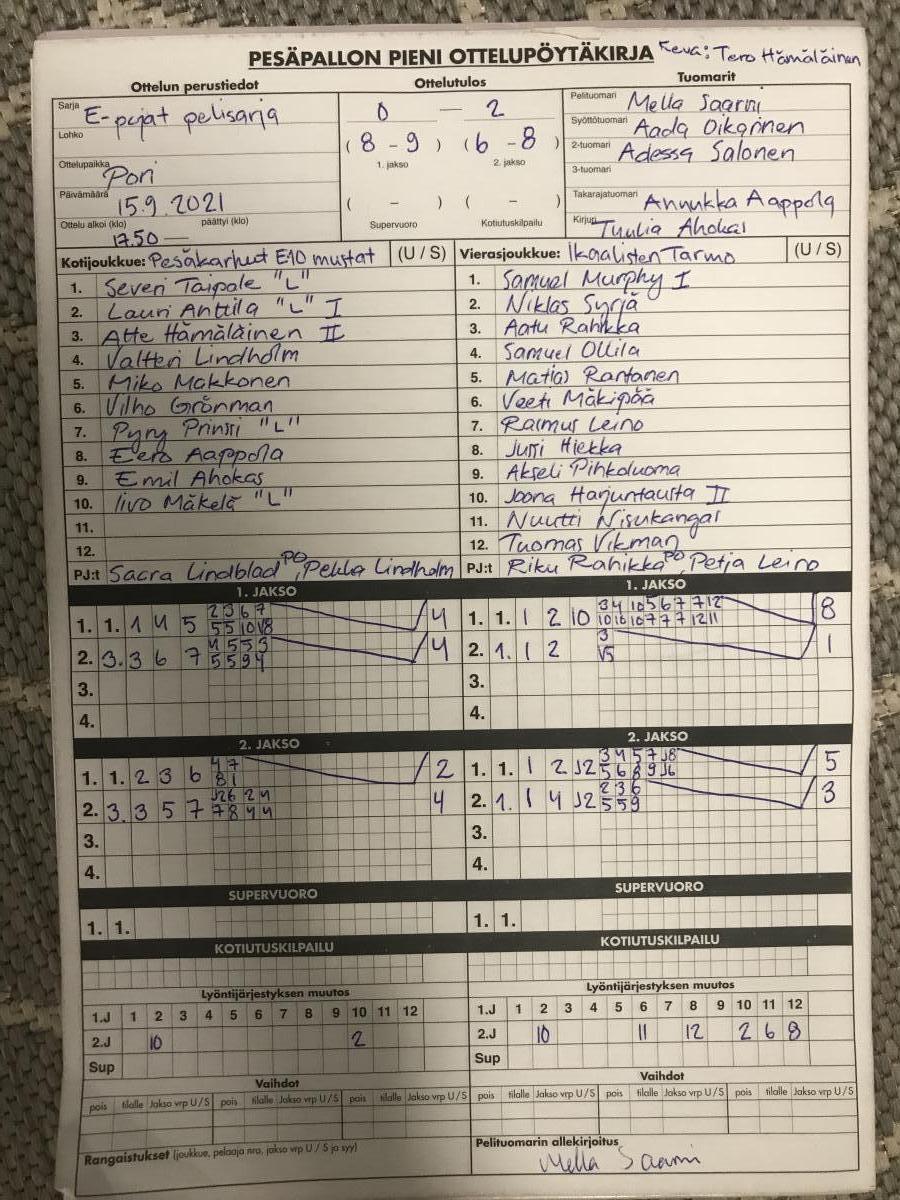 PESÄPALLON PIENI OTTELUPÖYTÄKIRJA Keva: Tero Hämäläinen
Ottelun perustiedot Ottelutulos Tuomarit
Sarja E-pojat pelisarja
Lohko
Ottelupaikka Pori
Päivämäärä 15.9.2021
Ottelu alkoi (klo) päättyi (klo)
17.50 —
0 — 2
(8 - 9) (6 - 8)
1. jakso 2. jakso
( - ) ( - )
Supervuoro Kotiutuskilpailu
Pelituomari Mella Saarni
Syöttötuomari Aada Oikarinen
2-tuomari Adessa Salonen
3-tuomari
Takarajatuomari Annukka Aappola
Kirjuri Tuulia Ahokas
Kotijoukkue: Pesäkarhut E10 mustat (U / S)
1. Severi Taipale "L"
2. Lauri Anttila "L" I
3. Atte Hämäläinen II
4. Valtteri Lindholm
5. Miko Makkonen
6. Vilho Grönman
7. Pyry Prinssi "L"
8. Eero Aappola
9. Emil Ahokas
10. Iivo Mäkelä "L"
11.
12.
PJ:t Lindblad PO, Pekka Lindholm
Vierasjoukkue: Ikaalisten Tarmo (U / S)
1. Samuel Murphy I
2. Niklas Syrjä
3. Aatu Rahikka
4. Samuel Ollila
5. Matias Rantanen
6. Veeti Mäkipää
7. Rasmus Leino
8. Jussi Hiekka
9. Akseli Pihkoluoma
10. Joona Harjuntausta II
11. Nuutti Nisukangas
12. Tuomas Vikman
PJ:t Riku Rahikka PO, Petja Leino
1. JAKSO
2 3 6 7
1. 1. 1 4 5 5 5 10 V8 4
4 5 5 3
2. 3. 3 6 7 5 5 9 4 4
3.
4.
1. JAKSO
3 4 10 5 6 7 7 12
1. 1. 1 2 10 10 10 10 7 7 7 12 11 8
3
2. 1. 1 2 V5 1
3.
4.
2. JAKSO
4 7
1. 1. 2 3 6 8 1 2
J2 6 2 4
2. 3. 3 5 7 7 8 4 4 4
3.
4.
2. JAKSO
3 4 5 7 J8
1. 1. 1 2 J2 5 6 8 9 J6 5
2 3 6
2. 1. 1 4 J2 5 5 9 3
3.
4.
SUPERVUORO
1. 1.
SUPERVUORO
1. 1.
KOTIUTUSKILPAILU
KOTIUTUSKILPAILU
Lyöntijärjestyksen muutos
1.J 1 2 3 4 5 6 7 8 9 10 11 12
2.J 10 2
Sup
Lyöntijärjestyksen muutos
1.J 1 2 3 4 5 6 7 8 9 10 11 12
2.J 10 11 12 2 6 8
Sup
Vaihdot
pois tilalle Jakso vrp U / S pois tilalle Jakso vrp U / S pois tilalle Jakso vrp U / S
Vaihdot
pois tilalle Jakso vrp U / S pois tilalle Jakso vrp U / S pois tilalle Jakso vrp U / S
Rangaistukset (joukkue, pelaaja nro, jakso vrp U / S ja syy)
Pelituomarin allekirjoitus
Mella Saarni